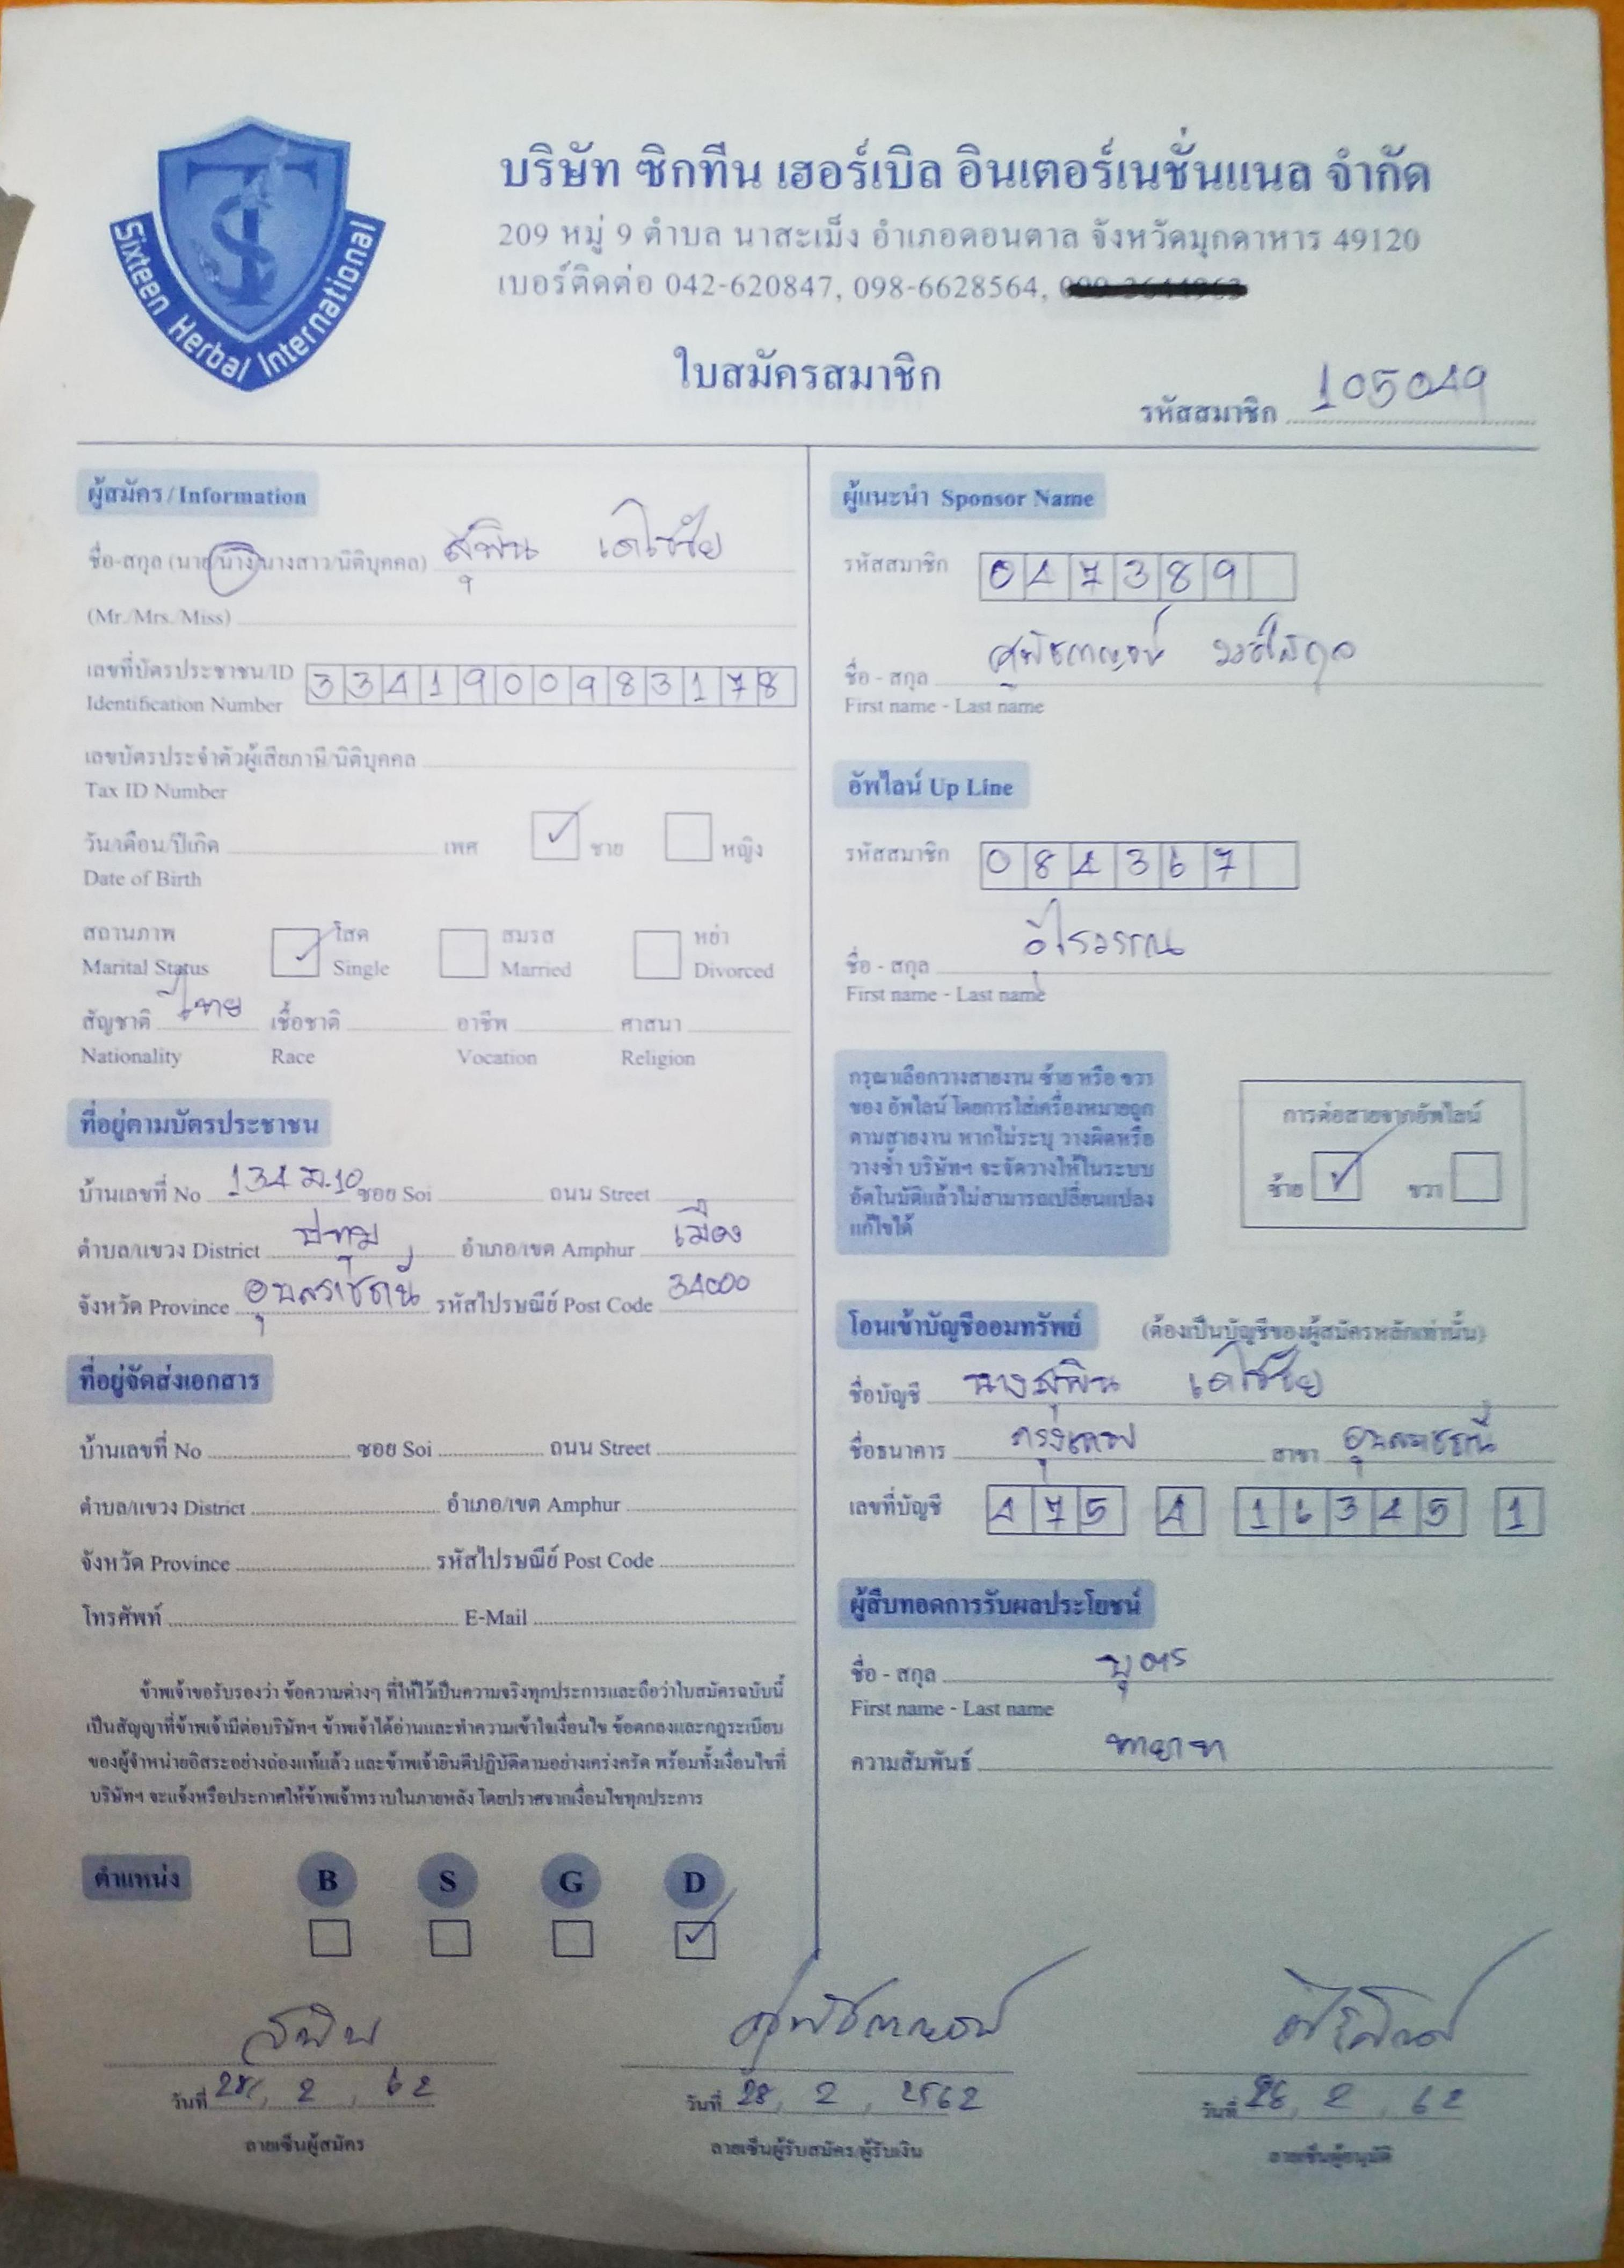 Sixteen Herbal International
บริษัท ซิกทีน เฮอร์เบิล อินเตอร์เนชั่นแนล จำกัด
209 หมู่ 9 ตำบล นาสะเม็ง อำเภอดอนตาล จังหวัดมุกดาหาร 49120
เบอร์ติดต่อ 042-620847, 098-6628564,
ใบสมัครสมาชิก
รหัสสมาชิก 105049
ผู้สมัคร / Information
ชื่อ-สกุล (นาย/นาง/นางสาว/นิติบุคคล) สุพิน เดโชชัย
(Mr./Mrs./Miss)
เลขที่บัตรประชาชน/ID 3341900983178
Identification Number
เลขบัตรประจำตัวผู้เสียภาษี/นิติบุคคล
Tax ID Number
วัน/เดือน/ปีเกิด เพศ ชาย หญิง
Date of Birth
สถานภาพ โสด สมรส หย่า
Marital Status Single Married Divorced
สัญชาติ ไทย เชื้อชาติ อาชีพ ศาสนา
Nationality Race Vocation Religion
ที่อยู่ตามบัตรประชาชน
บ้านเลขที่ No 134 ม.10 ซอย Soi ถนน Street
ตำบล/แขวง District ปทุม อำเภอ/เขต Amphur เมือง
จังหวัด Province อุบลราชธานี รหัสไปรษณีย์ Post Code 34000
ที่อยู่จัดส่งเอกสาร
บ้านเลขที่ No ซอย Soi ถนน Street
ตำบล/แขวง District อำเภอ/เขต Amphur
จังหวัด Province รหัสไปรษณีย์ Post Code
โทรศัพท์ E-Mail
ข้าพเจ้าขอรับรองว่า ข้อความต่างๆ ที่ให้ไว้เป็นความจริงทุกประการและถือว่าใบสมัครฉบับนี้
เป็นสัญญาที่ข้าพเจ้ามีต่อบริษัทฯ ข้าพเจ้าได้อ่านและทำความเข้าใจเงื่อนไข ข้อตกลงและกฎระเบียบ
ของผู้จำหน่ายอิสระอย่างถ่องแท้แล้ว และข้าพเจ้ายินดีปฏิบัติตามอย่างเคร่งครัด พร้อมทั้งเงื่อนไขที่
บริษัทฯ จะแจ้งหรือประกาศให้ข้าพเจ้าทราบในภายหลัง โดยปราศจากเงื่อนไขทุกประการ
ตำแหน่ง B S G D
ผู้แนะนำ Sponsor Name
รหัสสมาชิก 047389
ชื่อ - สกุล
First name - Last name
อัพไลน์ Up Line
รหัสสมาชิก 084367
ชื่อ - สกุล อุไรวรรณ
First name - Last name
กรุณาเลือกวางสายงาน ซ้าย หรือ ขวา
ของ อัพไลน์ โดยการใส่เครื่องหมายถูก
ตามสายงาน หากไม่ระบุ วางผิดหรือ
วางซ้ำ บริษัทฯ จะจัดวางให้ในระบบ
อัตโนมัติแล้วไม่สามารถเปลี่ยนแปลง
แก้ไขได้
การต่อสายจากอัพไลน์
ซ้าย ขวา
โอนเข้าบัญชีออมทรัพย์ (ต้องเป็นบัญชีของผู้สมัครหลักเท่านั้น)
ชื่อบัญชี นางสุพิน เดโชชัย
ชื่อธนาคาร กรุงเทพ สาขา อุบลราชธานี
เลขที่บัญชี 475 4 16345 1
ผู้สืบทอดการรับผลประโยชน์
ชื่อ - สกุล บุตร
First name - Last name
ความสัมพันธ์ ทายาท
สุพิน
วันที่ 28, 2, 62 วันที่ 28, 2, 2562 วันที่ 28, 2, 62
ลายเซ็นผู้สมัคร ลายเซ็นผู้รับสมัคร/ผู้รับเงิน ลายเซ็นผู้อนุมัติ